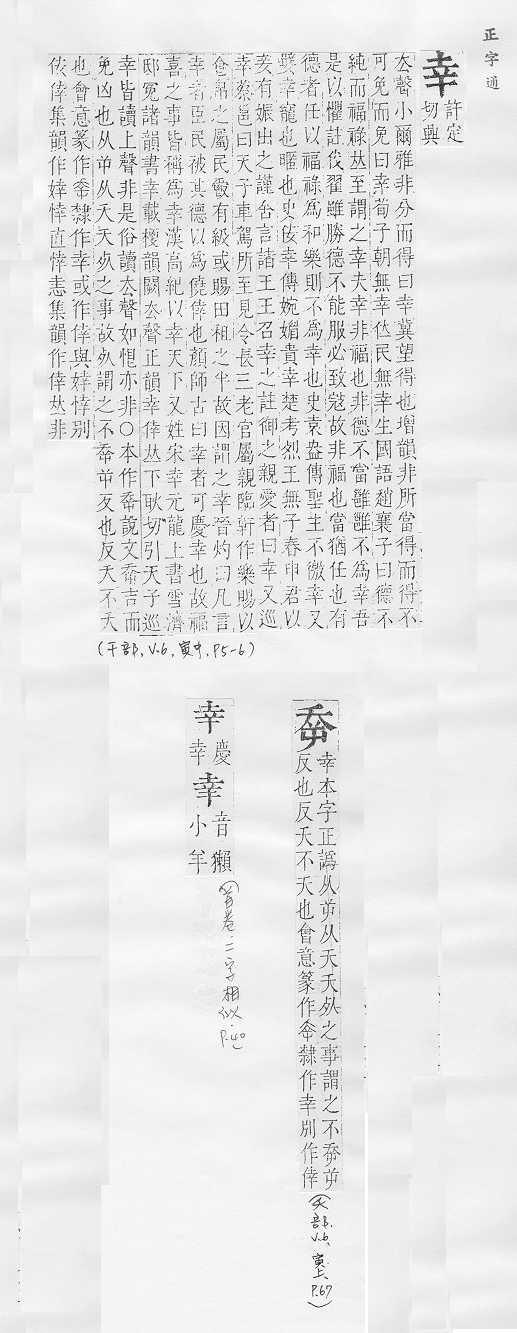 正字通
幸 許定切興
厺聲小爾雅非分而得曰幸冀望得也增韻非所當得而得不
可免而免曰幸荀子朝無幸位民無幸生國語趙襄子曰德不
純而福祿𠀤至謂之幸夫幸非福也非德不當雝雝不爲幸吾
是以懼註伐翟雖勝德不能服必致寇故非福也當猶任也有
德者任以福祿爲和樂則不爲幸也史袁盎傳聖主不徼幸又
嬖幸寵也暱也史佞幸傳婉媚貴幸楚考烈王無子春申君以
妾有娠出之謹舍言諸王王召幸之註御之親愛者曰幸又巡
幸蔡邕曰天子車駕所至見令長三老官屬親臨軒作樂賜以
食帛之屬民爵有級或賜田租之半故因謂之幸晉灼曰凡言
幸者臣民被其德以爲僥倖也顏師古曰幸者可慶幸也故福
喜之事皆稱爲幸漢高紀以幸天下又姓宋幸元龍上書雪濟
邸冤諸韻書幸載梗韻闕厺聲正韻幸倖𠀤下耿切引天子巡
幸皆讀上聲非是俗讀厺聲如惺亦非○本作㚔說文㚔吉而
免凶也从屰从夭夭死之事故死謂之不㚔屰反也反夭不夭
也會意篆作㚔隸作幸或作倖與婞悻別
佞倖集韻作婞悻直悻恚集韻作倖𠀤非
(干部, V.6, 寅中, P.5-6)
㚔 幸本字正譌从屰从夭夭死之事謂之不㚔屰
反也反夭不夭也會意篆作㚔隸作幸別作倖
(大部, V.6, 寅上, P.67)
幸 慶幸 幸 音獺小羊
(首卷:二字相似, P.40)